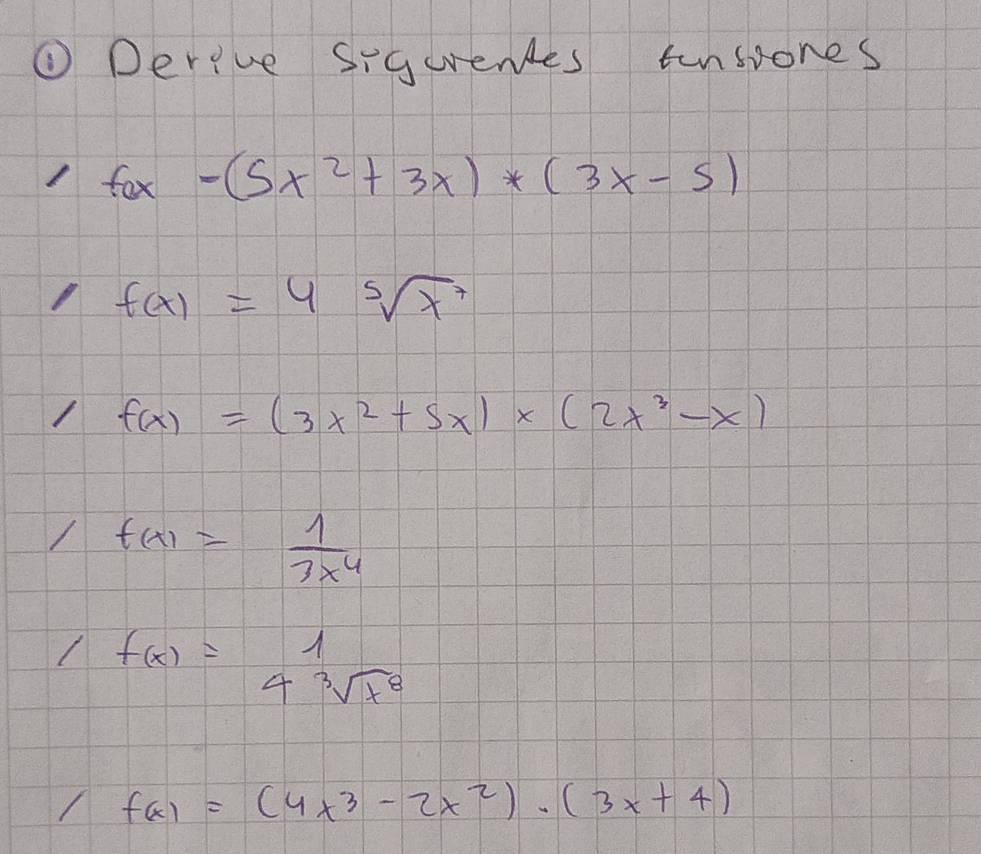 ① Derive siguientes funsiones
/ fox -(5x² + 3x) * (3x - 5)
/ f(x) = 4 ⁵√x⁷
/ f(x) = (3x² + 5x) × (2x³ - x)
/ f(x) = 1/3x⁴
/ f(x) = 1/4 ³√x⁸
/ f(x) = (4x³ - 2x²) . (3x + 4)